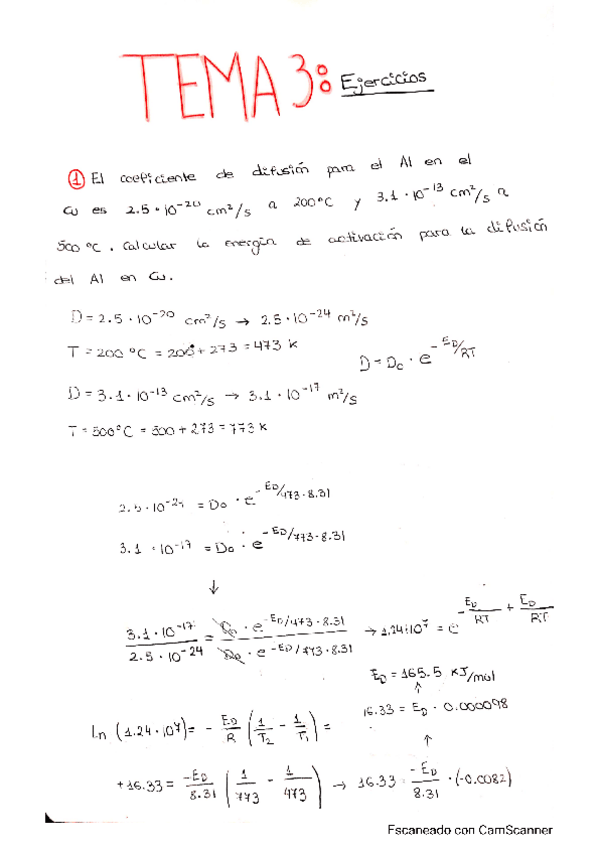 TEMA 3: Ejercicios
① El coeficiente de difusión para el Al en el
Cu es 2.5 · 10⁻²⁰ cm²/s a 200ºC y 3.1 · 10⁻¹³ cm²/s a
500 ºC. Calcular la energía de activación para la difusión
del Al en Cu.
D = 2.5 · 10⁻²⁰ cm²/s → 2.5 · 10⁻²⁴ m²/s
T = 200 ºC = 200 + 273 = 473 K
D = D₀ · e^(-E_D/RT)
D = 3.1 · 10⁻¹³ cm²/s → 3.1 · 10⁻¹⁷ m²/s
T = 500ºC = 500 + 273 = 773 K
2.5 · 10⁻²⁴ = D₀ · e^(-E_D/473 · 8.31)
3.1 · 10⁻¹⁷ = D₀ · e^(-E_D/773 · 8.31)
↓
3.1 · 10⁻¹⁷ / 2.5 · 10⁻²⁴ = D₀ · e^(-E_D/473 · 8.31) / D₀ · e^(-E_D/773 · 8.31) → 1.24·10⁷ = e^(-E_D/RT + E_D/RT)
E_D = 165.5 KJ/mol
↑
16.33 = E_D · 0.000098
↑
ln (1.24 · 10⁷) = - E_D/R (1/T₂ - 1/T₁) =
+16.33 = -E_D/8.31 (1/773 - 1/473) → 16.33 = -E_D/8.31 · (-0.0082)
Escaneado con CamScanner